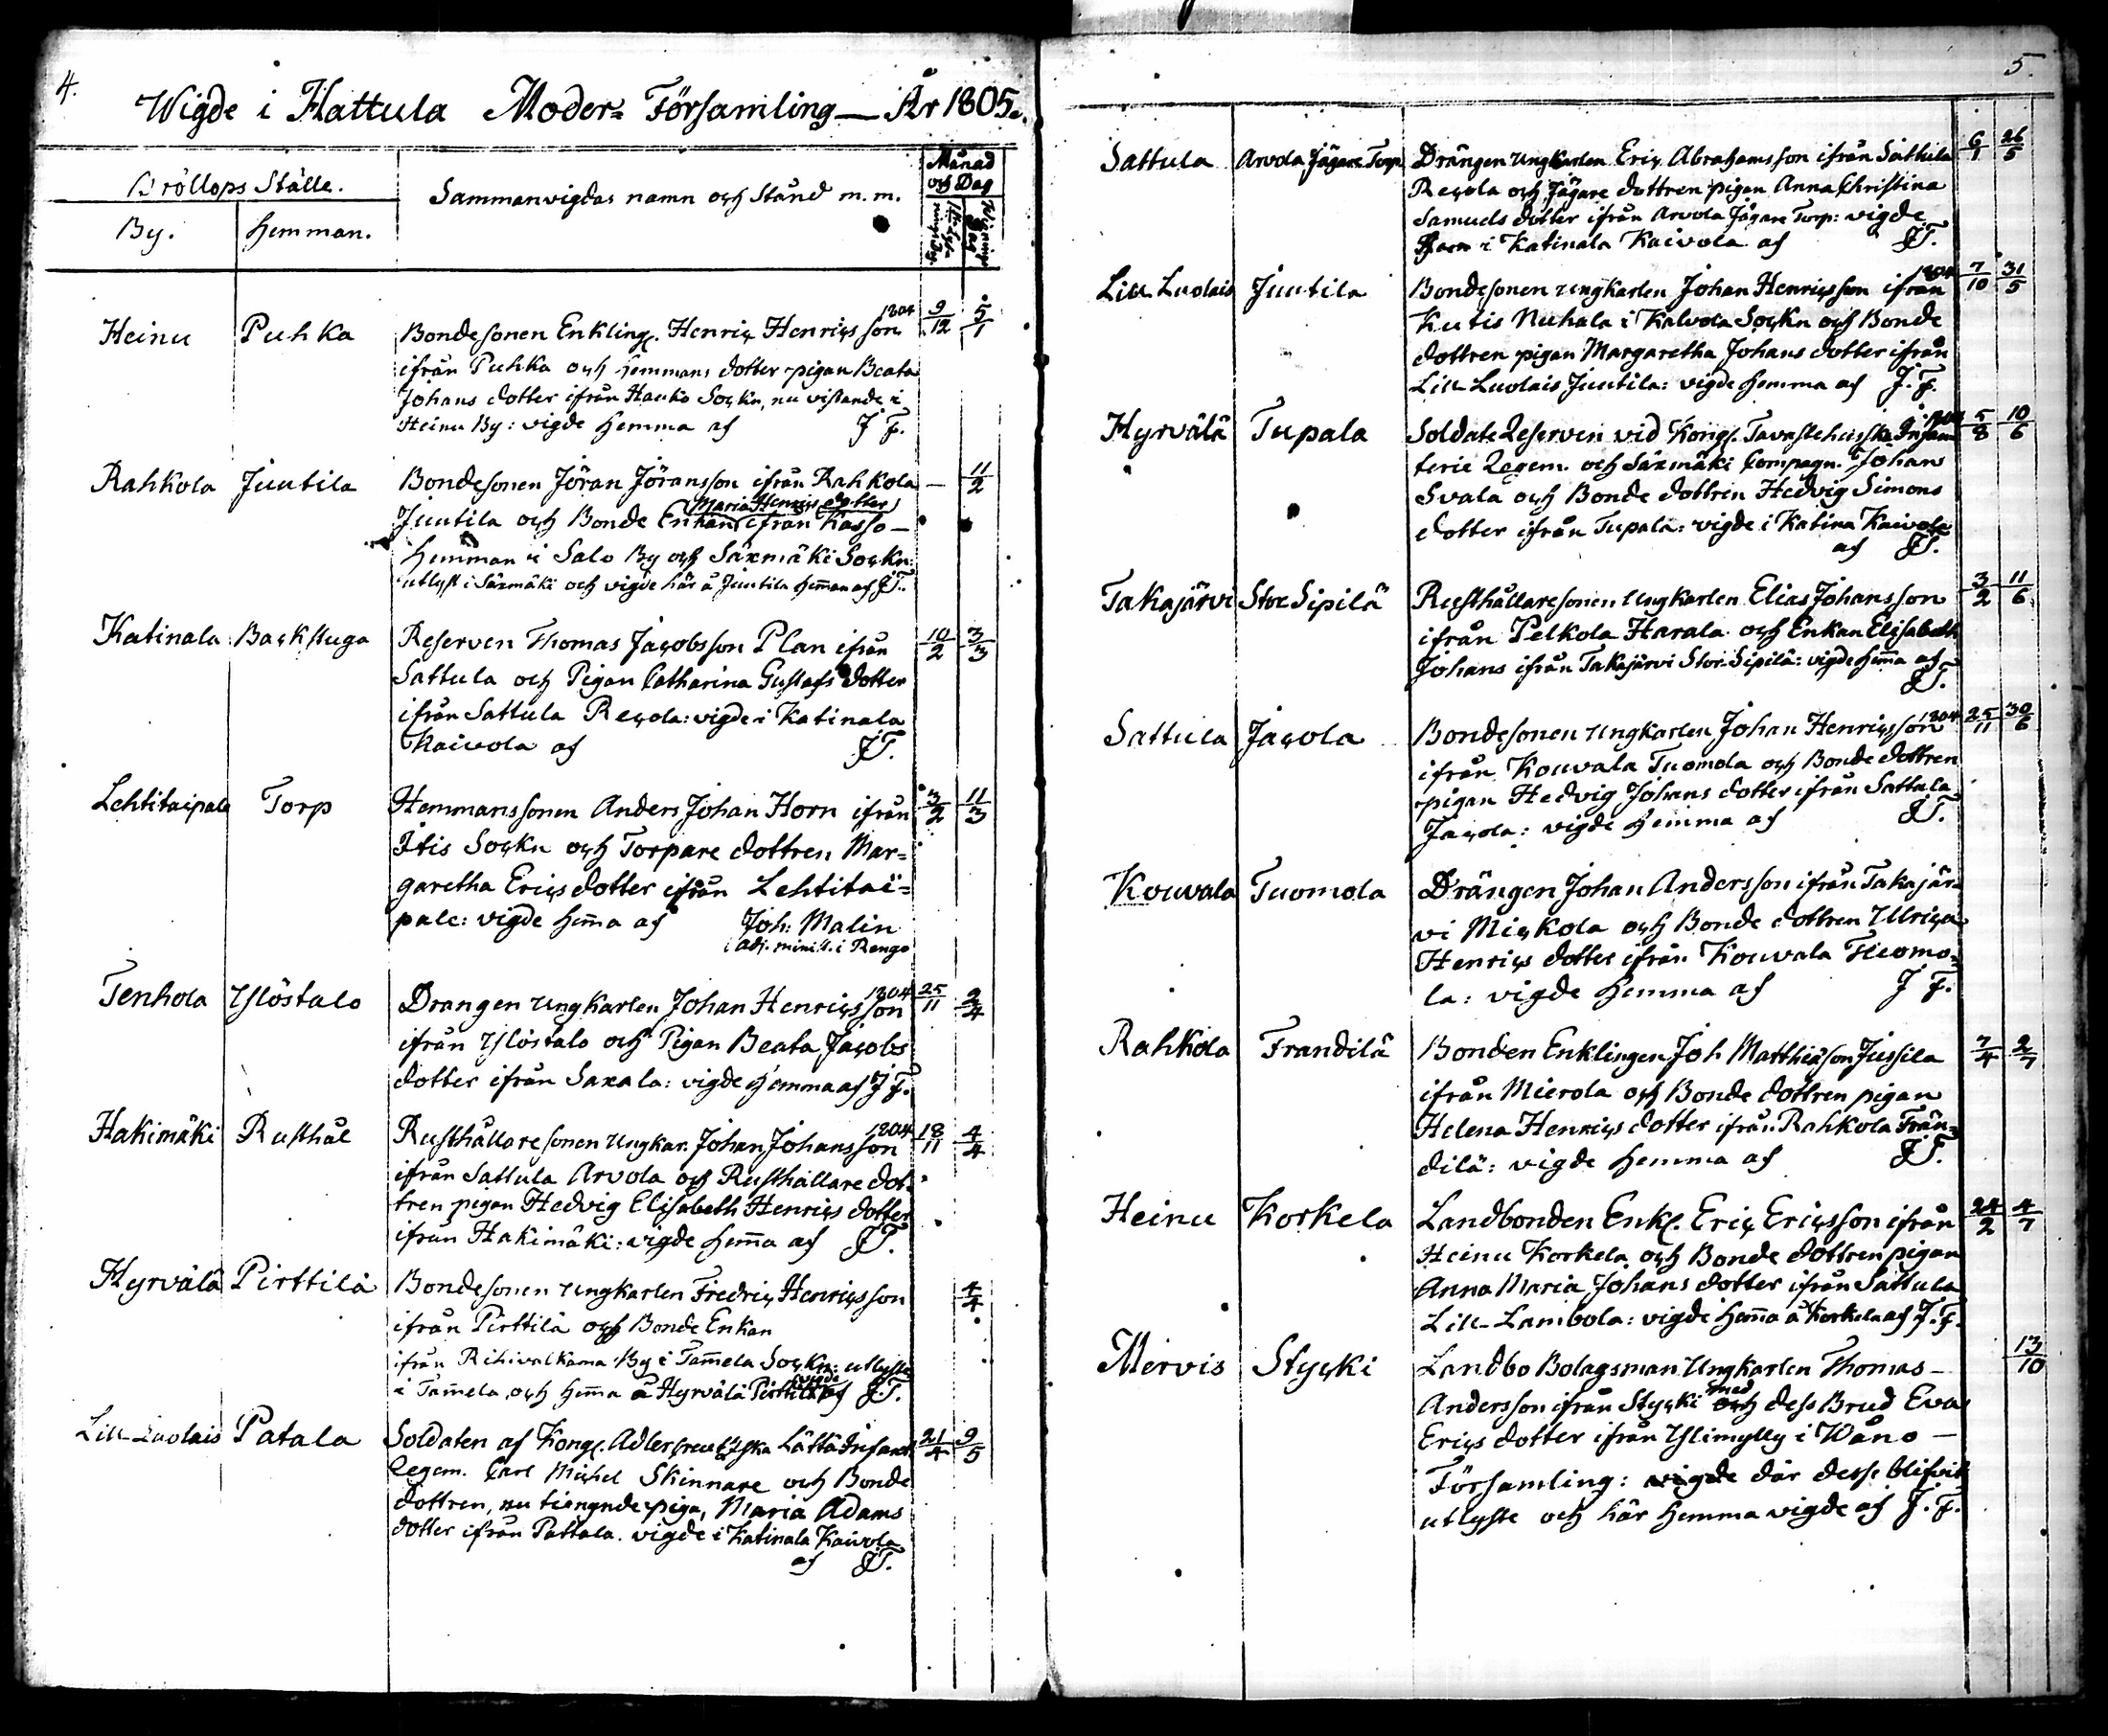 4.
Wigde i Hattula Moder= Församling — År 1805.
Bröllops Ställe.
By.
Hemman.
Sammanvigdas namn och Stånd m. m.
Månad och Dag
Heinu Puhka Bondesonen Enkling. Henric Henricsson 1804 9/12 5/1
ifrån Puhka och Hemmans dotter pigan Beata
Johans dotter ifrån Hauho Sockn, nu vistande i
Heinu By: vigde hemma af J F.
Rahkola Juutila Bondesonen Jöran Jöransson ifrån Rahkola — 11/2
Maria Henrics dotter
Juutila och Bonde Enkan ifrån Kasso —
Hemman i Salo By och Säxmäki Sockn:
utlyst i Säxmäki och vigde här å Juutila Hem̄an af JT.
Katinala Backstuga Reserven Thomas Jacobsson Plan ifrån 10/2 3/3
Sattula och Pigan Catharina Gustafs dotter
ifrån Sattula Recola: vigde i Katinala
Kaivola af JT.
Lehtitaipale Torp Hemmanssonen Anders Johan Horn ifrån 3/2 11/3
Itis Sockn och Torpare dottren Mar=
garetha Erics dotter ifrån Lehtitai=
pale: vigde hem̄a af Joh: Malin
adj. minist. i Rengo
Tenhola Ylöstalo Drangen Ungkarlen Johan Henricsson 1804 25/11 2/4
ifrån Ylöstalo och Pigan Beata Jacobs
dotter ifrån Saxala: vigde hemma af J F.
Hakimäki Rusthål Rusthållaresonen Ungkar. Johan Johansson 1804 18/11 4/4
ifrån Sattula Arvola och Rusthållare dot=
tren pigan Hedvig Elisabeth Henrics dotter
ifrån Hakimäki: vigde hem̄a af JT.
Hyrvälä Pirttilä Bondesonen Ungkarlen Fredric Henricsson 4/4
ifrån Pirttilä och Bonde Enkan
ifrån Rihivalkama By i Tam̄ela Sockn: utlyste
i Tam̄ela och hem̄a å Hyrvälä Pirttilä vigde af JT.
Lill Luolais Patala Soldaten af Kongl. Adlercreutzska Lätta Infant. 21/4 9/5
Regem. Carl Michel Skinnare och Bonde
dottren, nu tiengnde piga, Maria Adams
dotter ifrån Pattala. vigde i Katinala Kaivola
af JT.
5.
Sattula Arvola Jägare Torp Drängen Ungkarlen Eric Abrahamsson ifrån Sattula 6/1 26/5
Recola och Jägare dottren pigan Anna Christina
Samuels dotter ifrån Arvola Jägare Torp: vigde
i Katinala Kaivola af JT.
Lill Luolais Juutila Bondesonen Ungkarlen Johan Henricsson ifrån 1804 7/10 31/5
Kutis Nuhala i Kalvola Sockn och Bonde
dottren pigan Margaretha Johans dotter ifrån
Lill Luolais Juutila: vigde hemma af J. F.
Hyrvälä Tupala Soldate Reserven vid Kongl. Tavastehusska Infan 1804 5/8 10/6
terie Regem. och Säxmäki Compagn. Johan
Svala och Bonde dottren Hedvig Simons
dotter ifrån Tupala: vigde i Katina Kaivola
af JT.
Takajärvi Stor Sipilä Rusthållaresonen Ungkarlen Elias Johansson 3/2 11/6
ifrån Pelkola Harala och Enkan Elisabeth
Johans ifrån Takajärvi Stor Sipilä: vigde hem̄a af
JT.
Sattula Jacola Bondesonen Ungkarlen Johan Henricsson 1804 25/11 30/6
ifrån Kouvala Tuomola och Bonde dottren
pigan Hedvig Johans dotter ifrån Sattula
Jacola: vigde hemma af JT.
Kouvala Tuomola Drängen Johan Andersson ifrån Takajär=
vi Mickola och Bonde dottren Ulrica
Henrics dotter ifrån Kouvala Tuomo=
la: vigde hemma af J F.
Rahkola Frandilä Bonden Enklingen Joh Matthiæson Jussila 7/4 2/7
ifrån Mierola och Bonde dottren pigan
Helena Henrics dotter ifrån Rahkola Frän=
dilä: vigde hemma af JT.
Heinu Korkela Landbonden Enkl. Eric Ericsson ifrån 24/2 4/7
Heinu Korkela och Bonde dottren pigan
Anna Maria Johans dotter ifrån Sattula
Lill-Lambola: vigde hem̄a å Korkela af J. F.
Mervis Stycki Landbo Bolagsman Ungkarlen Thomas — 13/10
Andersson ifrån Stycki med dess Brud Eva
Erics dotter ifrån Ylimylly i Wåno —
Församling: där desse blifvit
utlyste och här hemma vigde af J. F.